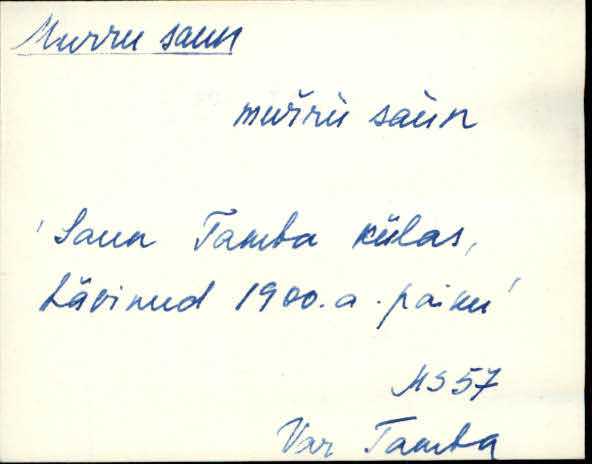 Murru saun
muřrù saùn
'Saun Tamba külas,
hävinud 1900.a. paiku'
MS 57
Var Tamba